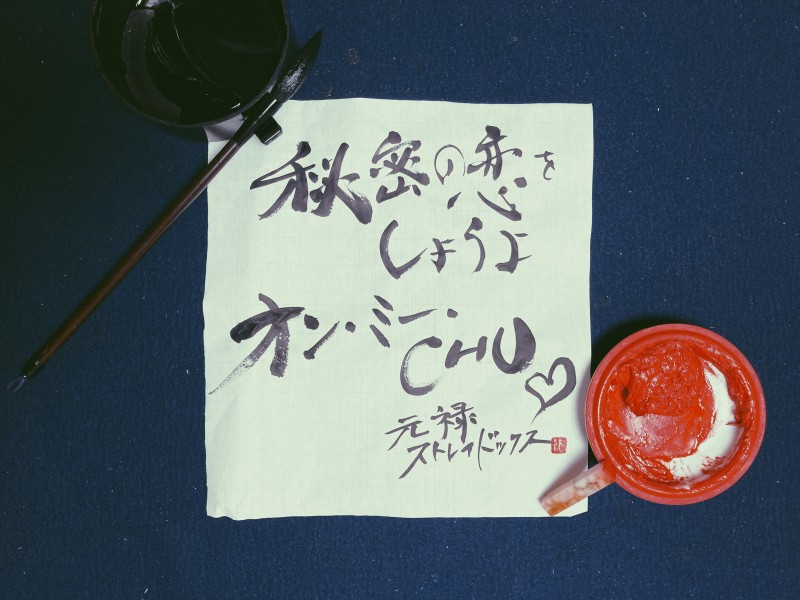 秘密の恋を
しょうよ
オン・ミー・
CHU♡
元禄
ストレイドッグス